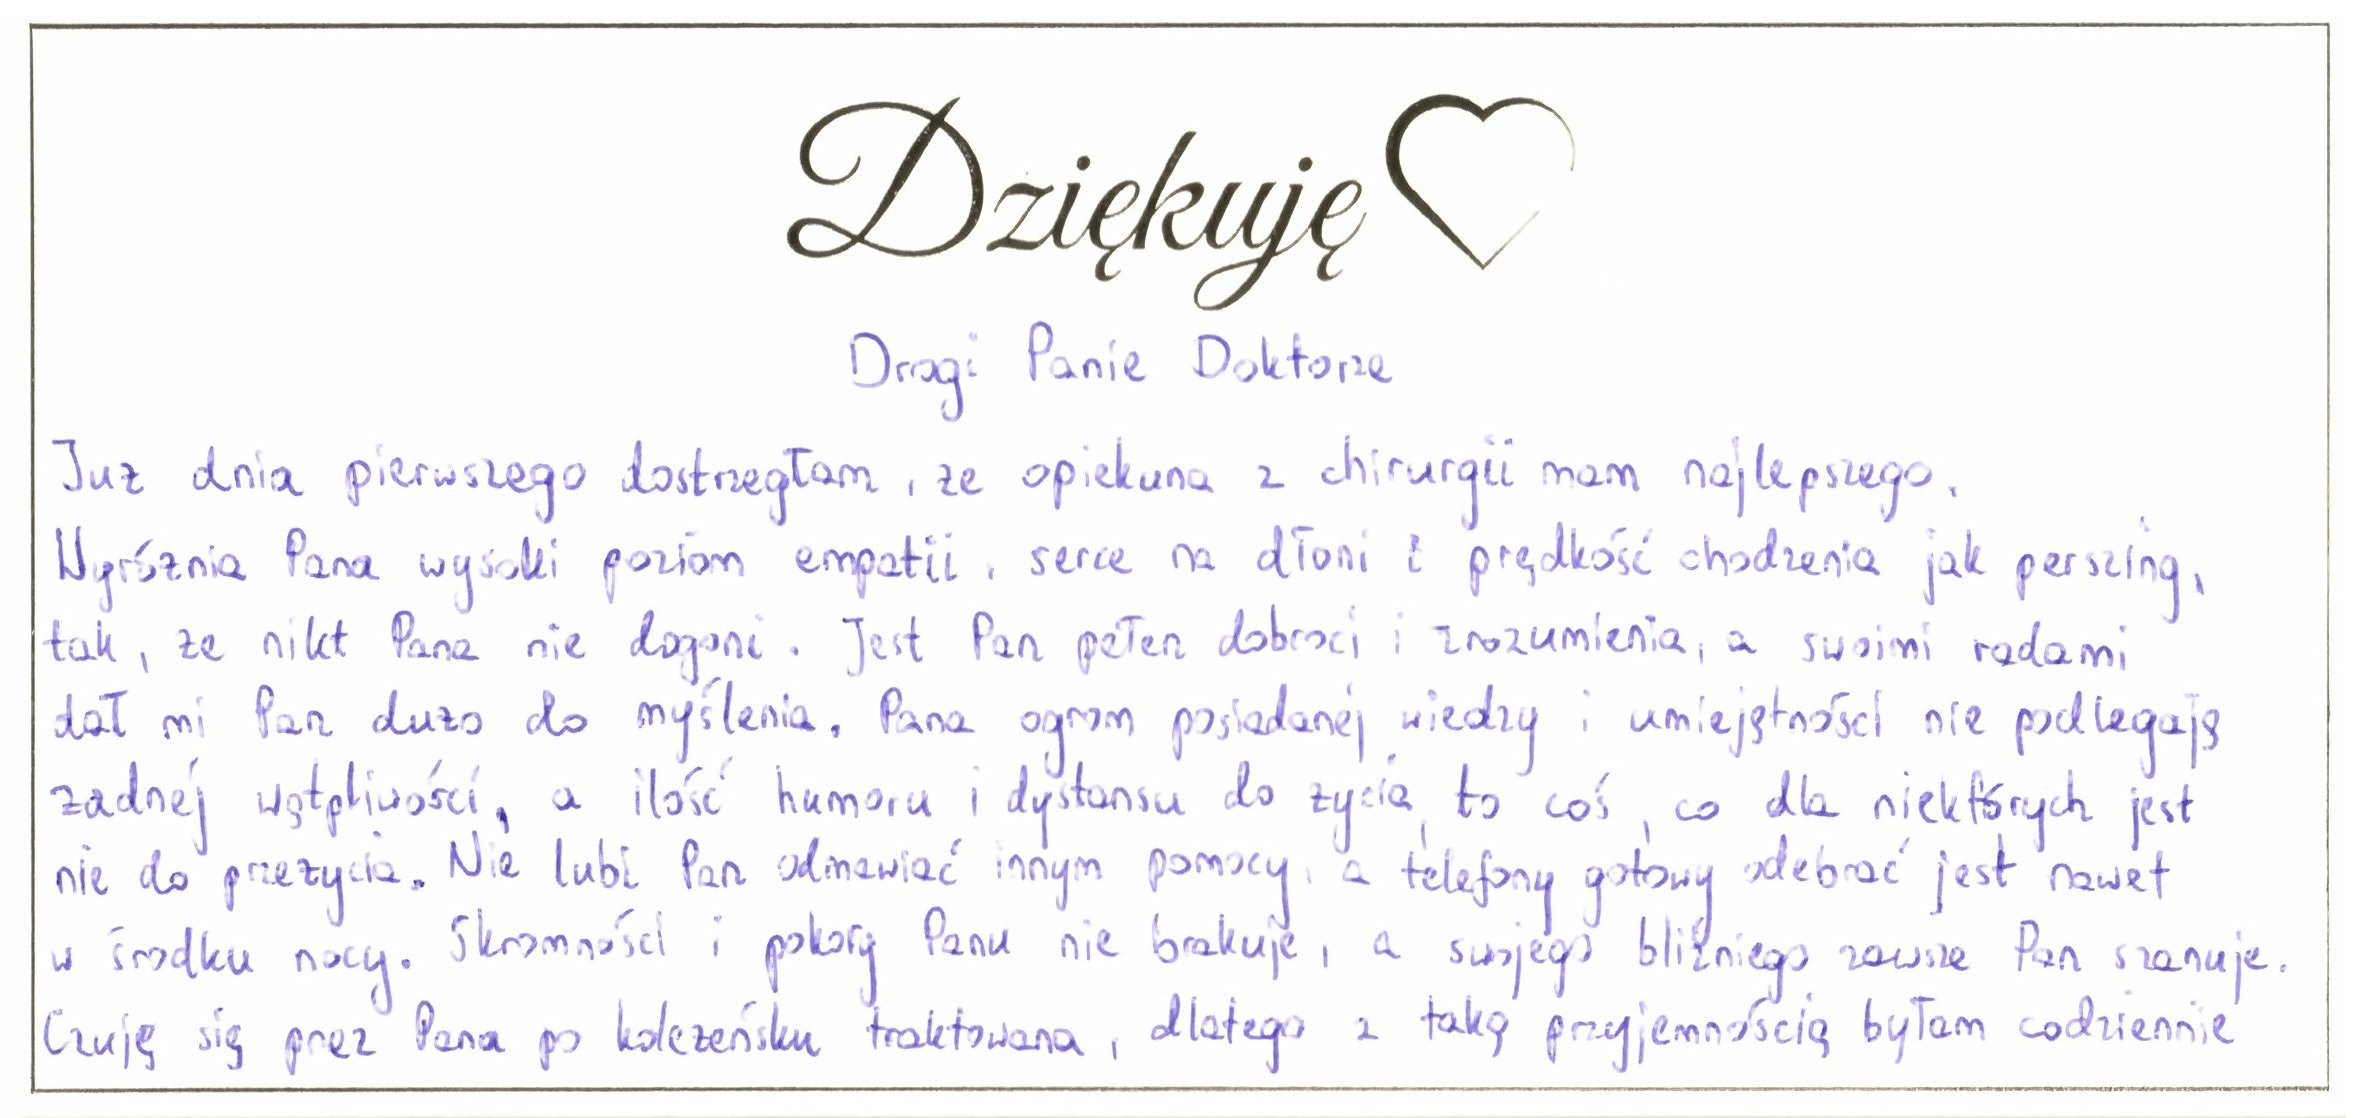 Dziękuję
Drogi Panie Doktorze
Już dnia pierwszego dostrzegłam, że opiekuna z chirurgii mam najlepszego.
Wyróżnia Pana wysoki poziom empatii, serce na dłoni i prędkość chodzenia jak perszing,
tak, że nikt Pana nie dogoni. Jest Pan pełen dobroci i zrozumienia, a swoimi radami
dał mi Pan dużo do myślenia. Pana ogrom posiadanej wiedzy i umiejętności nie podlegają
żadnej wątpliwości, a ilość humoru i dystansu do życia, to coś, co dla niektórych jest
nie do przeżycia. Nie lubi Pan odmawiać innym pomocy, a telefony gotowy odebrać jest nawet
w środku nocy. Skromności i pokory Panu nie brakuje, a swojego bliźniego zawsze Pan szanuje.
Czuję się przez Pana po koleżeńsku traktowana, dlatego z taką przyjemnością byłam codziennie